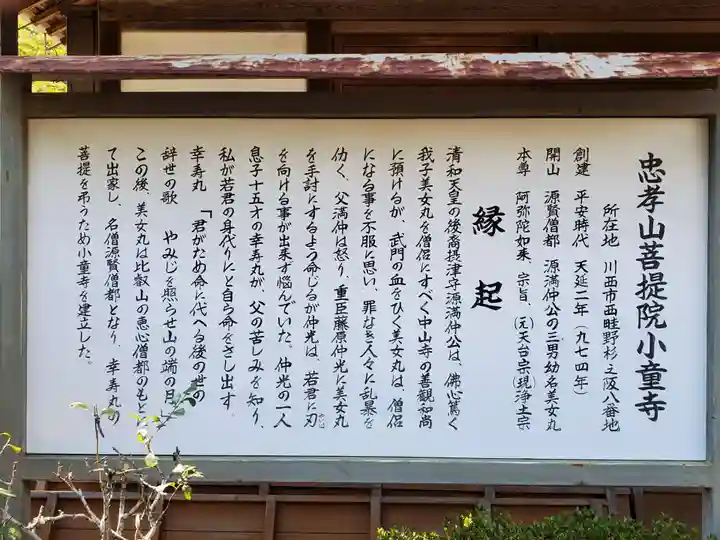 忠孝山菩提院小童寺
所在地 川西市西畦野杉之阪八番地
創建 平安時代 天延二年(九七四年)
開山 源賢僧都 源満仲公の三男幼名美女丸
本尊 阿弥陀如来、宗旨、(元)天台宗(現)浄土宗
縁起
清和天皇の後裔摂津守源満仲公は、佛心篤く
我子美女丸を僧侶にすべく中山寺の善観和尚
に預けるが、武門の血をひく美女丸は、僧侶
になる事を不服に思い、罪なき人々に乱暴を
仂く、父満仲は怒り、重臣藤原仲光に美女丸
を手討にするよう命じるが仲光は、若君に刃
を向ける事が出来ず悩んでいた。仲光の一人
息子十五才の幸寿丸が、父の苦しみを知り、
私が若君の身代りにと自ら命をさし出す。
幸寿丸 「君がため命に代へる後の世の
辞世の歌 やみじを照らせ山の端の月」
この後、美女丸は比叡山の恵心僧都のもと
て出家し、名僧源賢僧都となり、幸寿丸の
菩提を弔うため小童寺を建立した。